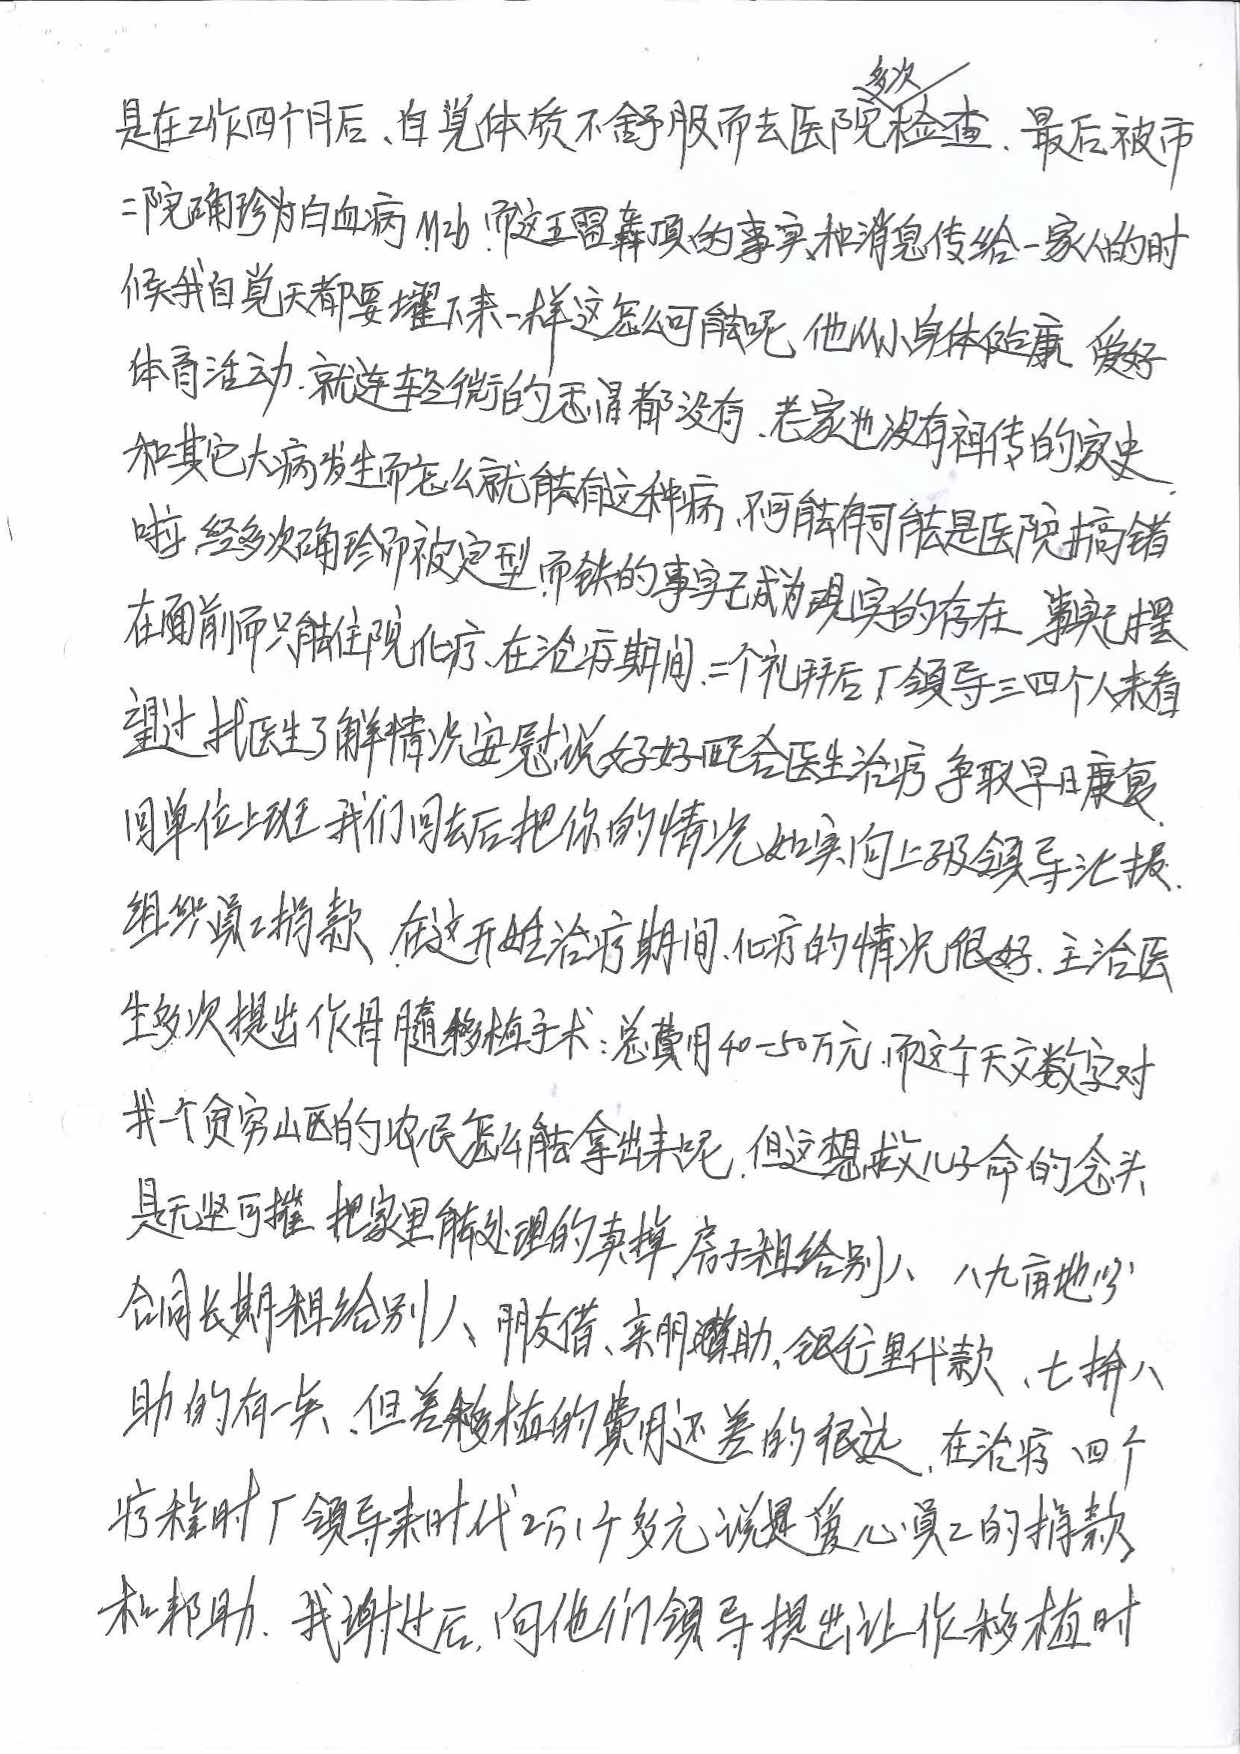 多次
是在工作四个月后、自觉体质不舒服而去医院检查、最后被市
二院确珍为白血病M2b、而这五雷轰顶的事实和消息传给一家人的时
候我自觉天都要摧下来一样这怎么可能呢 他从小身体健康 爱好
体育活动、就连轻微的感冒都没有、老家也没有祖传的家史
和其它大病发生而怎么就能有这种病、不可能有可能是医院搞错
啦 经多次确珍而被定型 而铁的事实已成为现实的存在 事实已摆
在面前而只能住院化疗、在治疗期间、二个礼拜后厂领导三四个人来看
望过 找医生了解情况 安慰说 好好配合医生治疗 争取早日康复
回单位上班 我们回去后把你的情况如实向上级领导汇报.
组织员工捐款 在这开始治疗期间、化疗的情况很好、主治医
生多次提出作骨髓移植手术:总费用40-50万元、而这个天文数字对
我一个贫穷山区的农民怎么能拿出来呢、但这想救儿子命的念头
是无坚可摧 把家里能处理的卖掉、房子租给别人、八九亩地以
合同长期租给别人、朋友借、亲朋 助、银行里代款、七拚八
助的有一点、但差移植的费用还差的很远、在治疗四个
疗程时厂领导来时代2万1千多元 说是爱心员工的捐款
和帮助. 我谢过后,向他们领导提出让作移植时